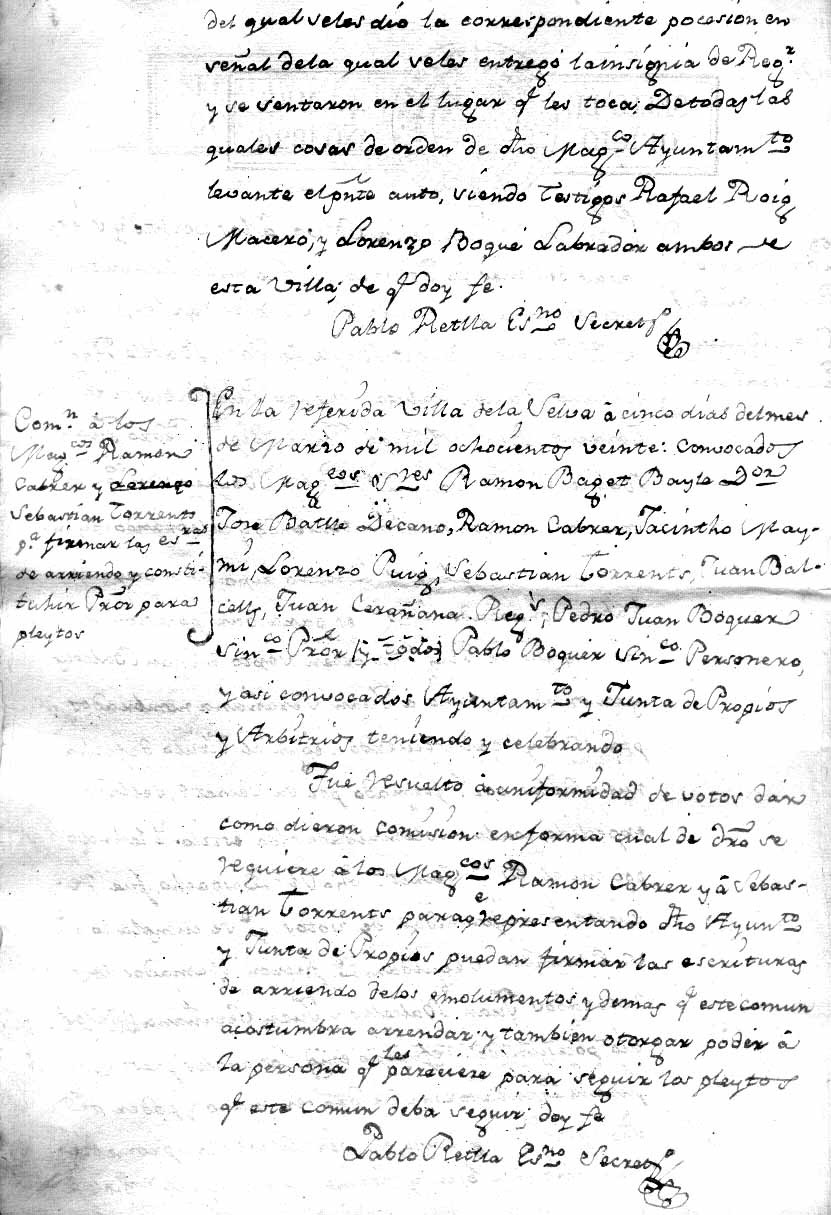 del qual seles dio la correspondiente pocesion en
señal dela qual seles entregó la insignia de Reg.r
y se sentaron en el lugar q.e les toca; De todas las
quales cosas de orden de dho Mag.co Ayuntam.to
levante el pnte auto, siendo Testigos Rafael Roig
Macero, y Lorenzo Boqué Labrador ambos de
esta Villa; de q.e doy fe.
Pablo Retlla Es.no Secret.o
Com.n â los
Mag.cos Ramon
Cabrer y Lorenzo
Sebastian Torrents
p.a firmar las es.ras
de arriendo y consti-
tuhir Pror para
pleytos
En la referida Villa dela Selva â cinco dias del mes
de Marzo de mil ochocientos veinte: convocados
los Mag.cos S.res Ramon Baget Bayle D.on
Jose Batlle Decano, Ramon Cabrer, Jacintho May-
mi, Lorenzo Puig, Sebastian Torrents, Juan Bal-
cells, Juan Cerañana Reg.s; Pedro Juan Boquer
Sin.co Pror Pablo Boquer Sin.co Personero,
y asi convocados Ayuntam.to y Junta de Propios
y Arbitrios teniendo y celebrando
Fué resuelto â uniformidad de votos dár
como dieron comision en forma cual de dro se
requiere â los Mag.cos Ramon Cabrer y â Sebas-
tian Torrents para q.e representando dho Ayun.to
y Junta de Propios puedan firmar las escrituras
de arriendo delos emolumentos y demas q.e este comun
acostumbra arrendar y tambien otorgar poder â
la persona q.e les pareciere para seguir los pleytos
q.e este comun deba seguir; doy fe
Pablo Retlla Es.no Secret.o